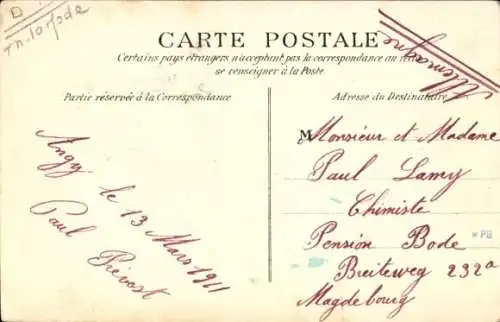 D
CARTE POSTALE
Allemagne
Certains pays étrangers n'acceptant pas la correspondance au
se renseigner à la Poste.
Partie réservée à la Correspondance
Adresse du Destinataire
Angy
le 13 Mars 1911
Paul Prévost
Monsieur et Madame
Paul Lamy
Chimiste
Pension Bode
Breiteweg 232a
Magdebourg